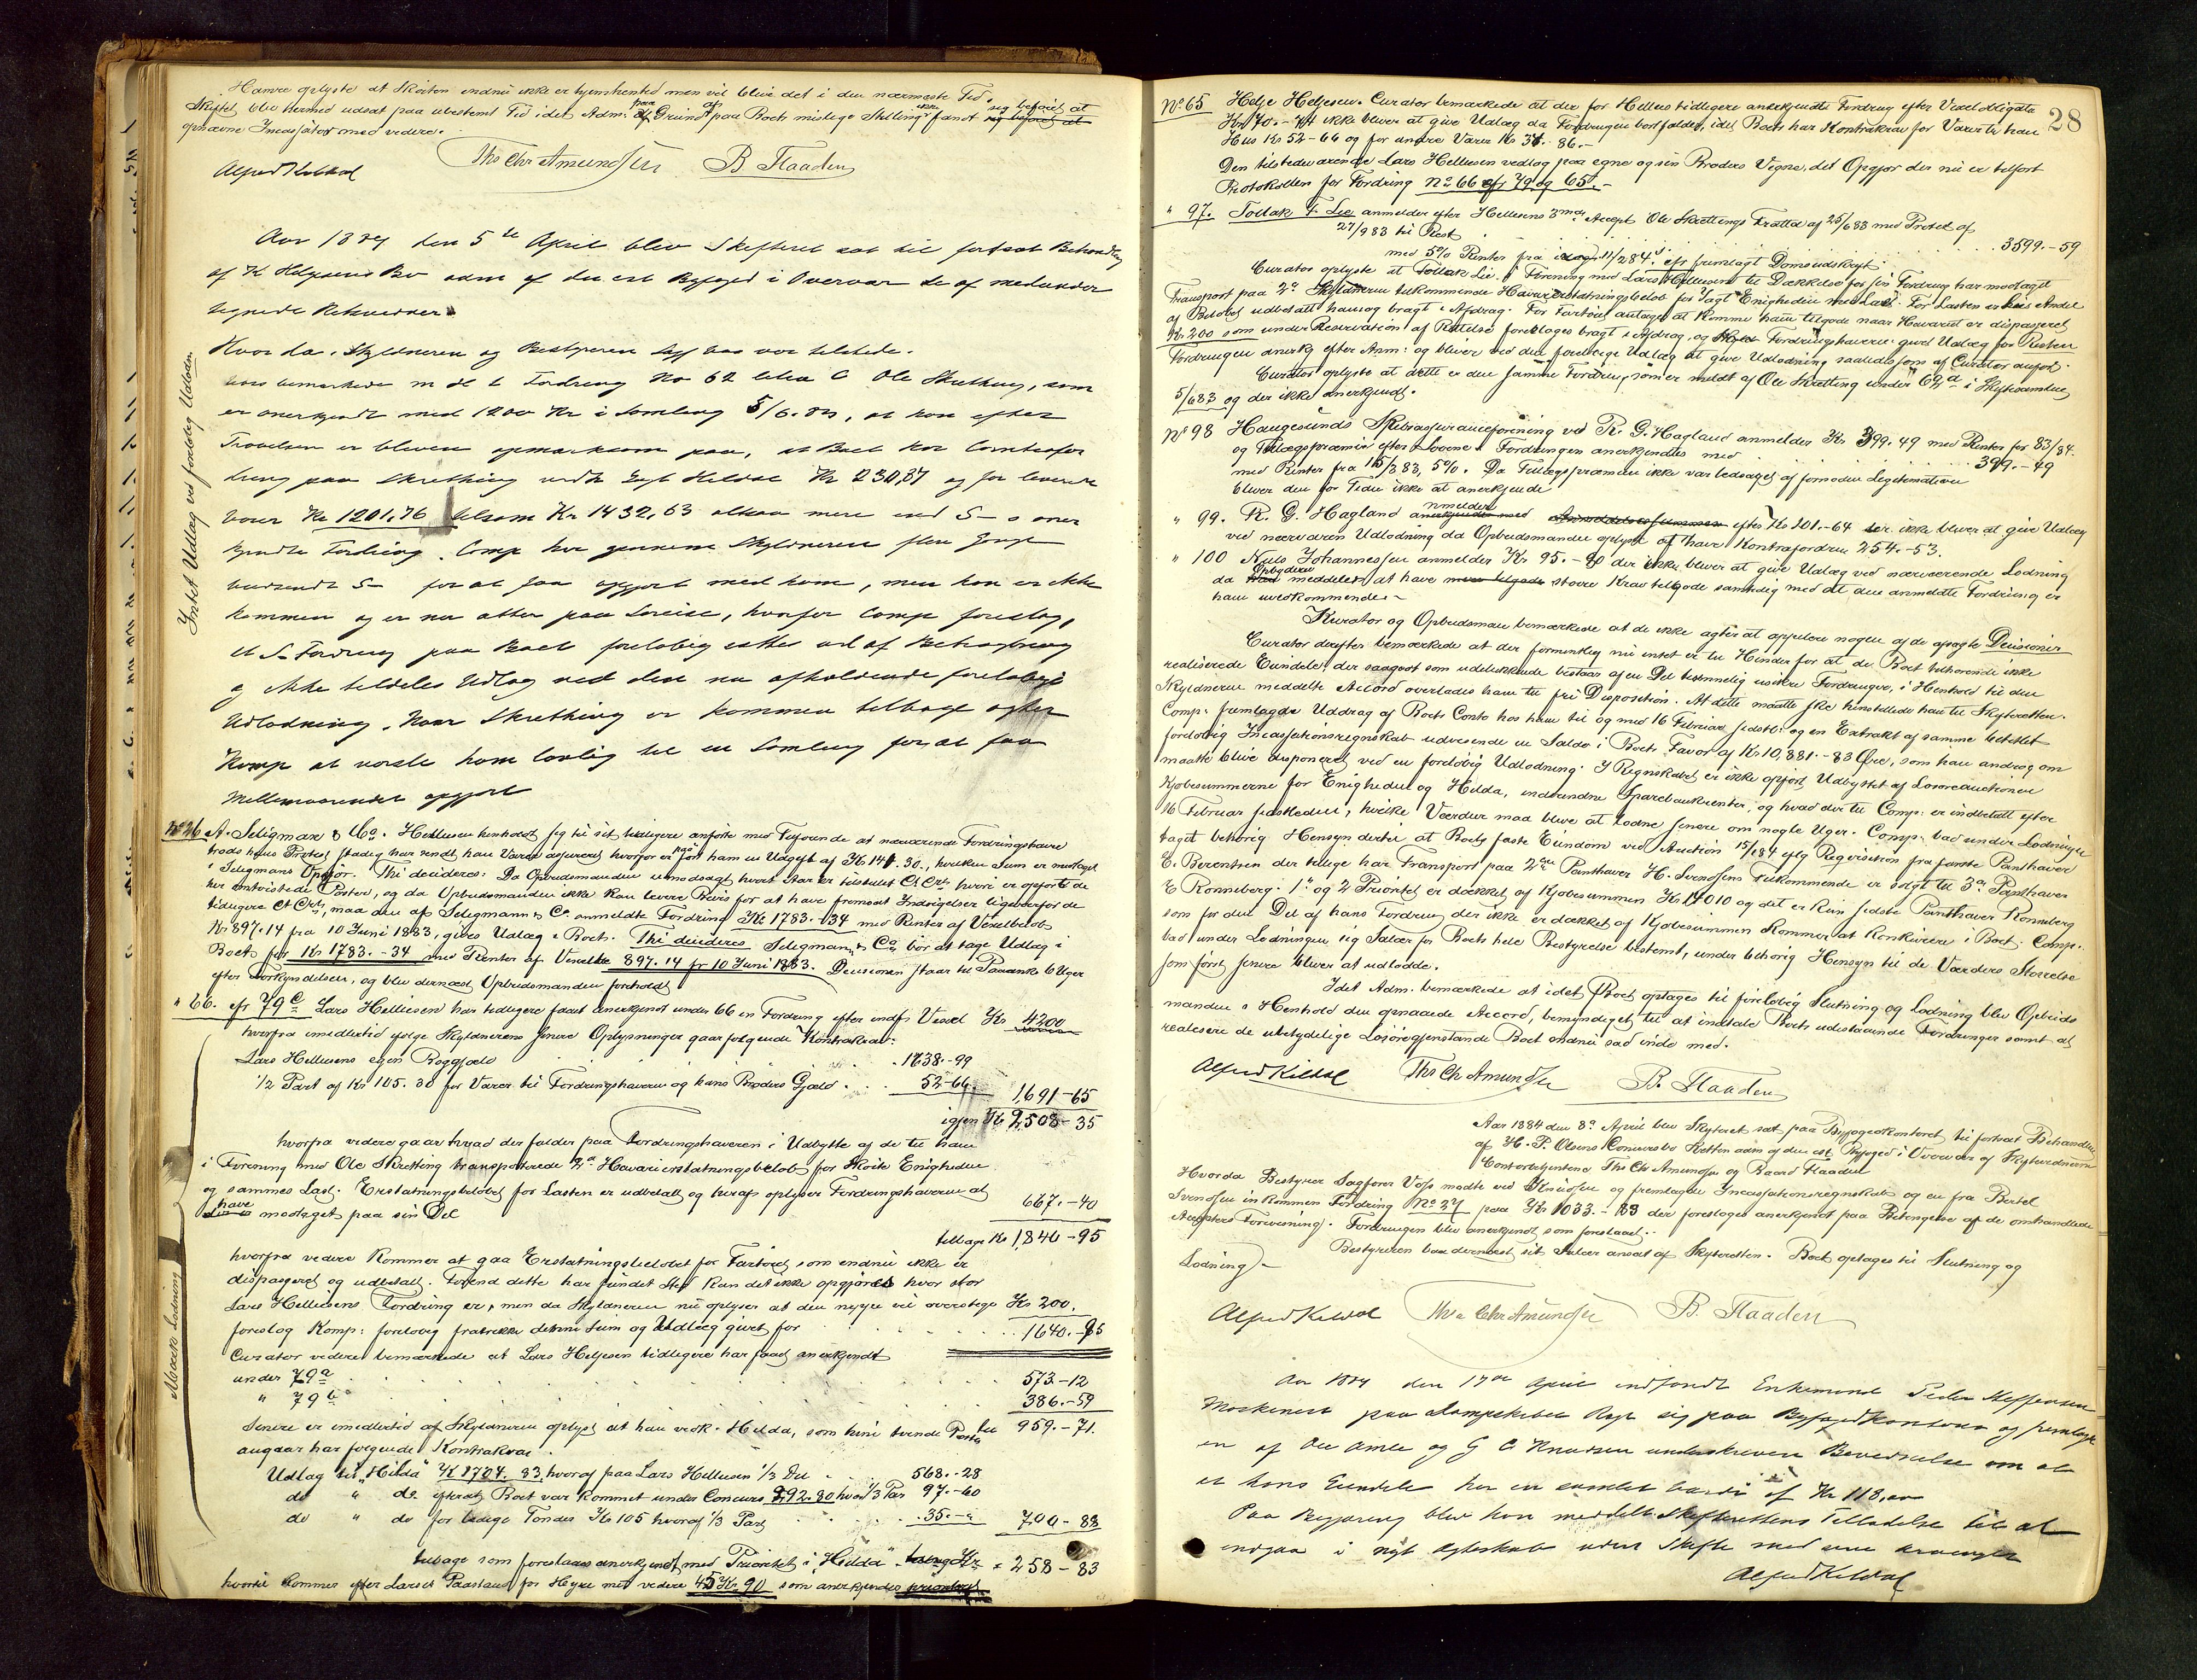 Hanse oplyste at Skøiten endnu ikke er hjemhented men vil blive det i den nærmeste Tid.
Skiftet blev hermed udsat paa ubestemt Tid idet Adm: paa Grund af paa Boets mislige Stilling ikke fandt sig beføiet at
opnævne Incassator med videre.
Alfred Kildal Ths Chr Amundsen B. Flaaden
Aar 1884 den 5te April blev Skifteret sat til fortsat Behandling
af H Helgesens Bo adm af den cst Byfoged i Overvær de af medunder
tegnede Retsvidner.
Hvorda. Skyldneren og Bestyreren Sagf Vos var tilstede.
Voss bemærkede m H t Fordring No 62 litra C Ole Skretting, som
er anerkjendt med 1200 Kr i Samling 5/6.83, at han efter
Prøvelsen er bleven opmærksom paa, at Boet har Contrafor
dring paa Skretting vedk Jagt Hilda Kr 230,87 og for leverede
varer Kr 1201,76 tilsam Kr 1432,63 altsaa mere end S- s aner
kjendte Fordring. Comp har gjennem Skyldneren flere Gange
budsendt S- for at faa opgjort med ham, men han er ikke
kommen og er nu atter paa Søreise, hvorfor Comp foreslog,
at S- Fordring paa Boet foreløbig sættes ud af Betragtning
og ikke tildeles Udlæg ved den nu afholdende foreløbige
Udlodning. Naar Skretting er kommen tilbage agter
Komp at varsle ham lovlig til en Samling for at faa
Mellemværendet opgjort
Intet Udlæg ved foreløbig Udlodn.
No 26 A. Seligman & Co. Hellesen henholdt sig til sit tidligere anførte med Tilføiende at nærværende Fordringshaver
trods hans Protest stadig har sendt ham Varer
i Seligmans Opgjør. Thi decideres: Da Opbudsmanden uimodsagt hvert Aar er tilstillet Ct Crt hvori er opførte de
her omtvistede Poster, og da Opbudsmanden ikke kan levere Bevis for at have fremsat Indsigelser ligeoverfor de
tidligere Ct Crt, maa den af Seligmann & Co. anmeldte Fordring Kr 1783.-34 med Renter af Vexelbeløb
Kr 897.14 fra 10 Juni 1883, gives Udlæg i Boet. Thi decideres Seligmann & Co bør at tage Udlæg i
Boet for Kr 1783.-34 med Renter af Vexelen 897.14 fr 10 Juni 1883. Decisionen staar til Paaanke 6 Uger
efter Forkyndelsen, og blev dernæst Opbudsmanden foreholdt
" 66. cfr 79c Lars Hellesen har tidligere faaet anerkjent under 66 en Fordring efter indfr Vexel Kr 4200
hvorfra imidlertid ifølge Skyldnerens senere Oplysninger gaar følgende Kontrakrav:
Lars Hellesens egen Boggjæld 1638.-99
1/2 Part af Kr 105.30 for Varer til Fordringshaveren og hans Broders Gjæld . . . 52-66 1,691-65
igjen Kr 2508-35
hvorfra videre gaar hvad der falder paa Fordringshaveren i Udbytte af de til ham
i Forening med Ole Skretting transporterede 2de Havarierstatningsbeløb for Skøite Enigheden
og sammes Last. Erstatningsbeløbet for Lasten er udbetalt og heraf oplyser Fordringshaveren at
have modtaget paa sin Del 667.-40
tilbage Kr 1,840-95
hvorfra videre kommer at gaa Erstatningsbeløbet for Fartøiet som endnu ikke er
dispasjeret og udbetalt. Førend dette har fundet Sted kan det ikke opgjøres hvor stor
Lars Hellesens Fordring er, men da Skyldneren nu oplyser at den neppe vil overstige Kr 200.
foreslog Komp: foreløbig fratrække denne Sum og Udlæg givet for 1640.-95
Curator videre bemærkede at Lars Helgesen tidligere har faaet anerkjendt
under 79a 573-12
" 79b 386.-59
959.-71.
Senere er imidlertid af Skyldneren oplyst at han vedk. Hilda, som hine tvende Poster
angaar har følgende Kontrakrav.
Udlag til "Hilda" Kr 1704.83, hvoraf paa Lars Hellesen 1/3 Del 568.-28
do " do efterat Boet var kommet under Concurs 292.80 hvoraf 1/3 Par 97.-60
do " do for ledige Tønder Kr 105 hvoraf 1/3 Part 35.- 700-88
tilbage som foreslaaes anerkjendt med Prioritet i "Hilda" Kr " 258-83
hvortil kommer efter Larses Paastand for Hyre med videre 45 Kr 90 som anerkjendes
Mærk Lodning
28
No 65 Helje Heljesen. Curator bemærkede at der for Helles tidligere anerkjendte Fordring efter Vexelobligatio
Kr 70.-44 ikke bliver at give Udlæg da Fordringen bortfalder, idet Boets har Kontrakrav for Varer til han
Hus Kr 52-66 og for andre Varer Kr 34.86.-
Den tilstedeværende Lars Hellesen vedtog paa egne og sin Broders Vegne det Opgjør der nu er tilført
Protokollen for Fordring No 66 cfr 79 og 65.-
" 97. Tollak T. Lie anmelder efter Hellesens 3 mds Accept Ole Skrettings Tratta af 25/6 83 med Protest af
27/9 83 til Rest 3599.-59
med 5% Renter fra idag 11/2 84. cfr fremlagt Domsudskrift.
Curator oplyste at Tollak Lie i Forening med Lars Hellesen til Dækkelse for sin Fordring har modtaget
Transport paa 2de Skyldneren tilkommende Havarierstatningsbeløb for Jagt Enigheden med Last. For Lasten er hans Andel
af Beløbet udbetalt ham og bragt i Afdrag. For Fartøiet antages at komme ham tilgode naar Havariet er dispasjeret
Kr 200 som under Reservation af Rettelse foreslages bragt i Afdrag, og Fordringshaveren givet Udlæg for Resten
Fordringen anerkj efter Anm: og bliver ved den foreløbige Udlæg at give Udlodning saaledes som af Curator anført.
Curator oplyste at dette er den samme Fordring, som er meldt af Ole Skretting under 62a i Skiftesamling
5/6 83 og der ikke anerkjendt.
No 98 Haugesunds Skibsassuranceforening ved R. G. Hagland anmelder Kr 399.49 med Renter for 83/84.
og Tillægspræmie efter Lovene. Fordringen anerkjendtes med 399.-49
med Renter fra 15/3 83, 5%. Da Tillægspræmien ikke var ledsaget af fornøden Legitimation
bliver den for Tiden ikke at anerkjende
" 99. R. G. Hagland anmelder efter Kr 201.-64 der ikke bliver at give Udlæg
ved nærværen Udlodning da Opbudsmanden oplyste at have Kontrafordring 254.-53.
" 100 Nils Johannessen anmelder Kr. 95.-80 der ikke bliver at give Udlæg ved nærværende Lodning
da Opbyderen meddeles at have større Krav tilgode samtidig med at den anmeldte Fordring er
ham uvedkommende.-
Kurator og Opbudsman bemærkede at de ikke agter at appelere nogen af de afsagte Decisioner
Curator derefter bemærkede at der formentlig nu intet er til Hinder for at de Boet tilhørende ikke
realiserede Eiendeler der saagodt som udelukkende bestaar af en Del temmelig usikre Fordringer, i Henhold til den
Skyldneren meddelte Accord overlades ham til fri Disposition. At dette maatte ske henstillede han til Skifteretten.
Comp: fremlagde Uddrag af Boets Conto hos ham til og med 16 Februar sidstl: og en Extrakt af samme betitlet
foreløbig Incassationsregnskab udvisende en Saldo i Boets Favør af Kr 10,881.-83 Øre, som han androg om
maatte blive disponeret ved en foreløbig Udlodning. I Regnskabet er ikke opført Udbyttet af Løsøreauctionen
Kjøbesummerne for Enigheden og Hilda, indvundne Sparebankrenter, og hvad der til Comp: er indbetalt efter
16 Februar sidstleden, hvilke Værdier maa blive at lodne senere om nogle Uger. Comp: bad under Lodningen
taget behørig Hensyn dertil at Boets faste Eiendom ved Auction 15/1 84 eftg Reqvisition fra første Panthaver
E. Berentsen der tillige har Transport paa 2den Panthaver H. Svendsens Tilkommende er solgt til 3die Panthaver
E Rønneberg. 1ste og 2 Prioritet er dækket af Kjøbesummen Kr 14010 og det er kun sidste Panthaver Rønneberg
som for den Del af hans Fordring der ikke er dækket af Kjøbesummen kommer at konkurrere i Boet. Comp.
bad under Lodningen sig Salær for Boets hele Bestyrelse bestemt, under behørig Hensyn til de Værdiers Størrelse
som først senere bliver at udlodde.
Idet Adm. bemærkede at idet Boet optages til foreløbig Slutning og Lodning blev Opbuds
manden i Henhold den opnaaede Accord, bemyndiget til at indtale Boets udestaaende Fordringer samt at
realisere de ubetydelige Løsøregjenstande Boet endnu sad inde med.
Alfred Kildal Ths Chr Amundsen B. Flaaden
Aar 1884 den 8de April blev Skifteret sat paa Byfogedkontoret til fortsat Behandling
af H. P. Olsens Concursbo Retten adm af den cst. Byfoged i Overvær af Skiftevidnerne
Contorbetjentene Ths Chr Amundsen og Baard Flaaden
Hvorda Bestyrer Sagfører Voss mødte ved Knudsen og fremlagde Incassationsregnskab og en fra Bertel
Svendsen inkommen Fordring No 34 paa Kr 1033.-83 der foresloges anerkjendt paa Betingelse af de omhandlede
Accepters Forevisning. Fordringen blev anerkjendt som foreslaaet.-
Bestyreren bad dernæst sit Salær ansat af Skifteretten. Boet optages til Slutning og
Lodning.-
Alfred Kildal Ths Chr Amundsen B. Flaaden
Aar 1884 den 17de April indfandt Enkemand Peder Steffensen
Maskinist paa Dampskibet Røgt sig paa Byfogedkontoret og fremlagde
en af Ole Amle og G C Knudsen underskreven Bevidnelse om at
at hans Eiendele har en samlet Værdi af Kr 118,00
Paa Begjæring blev han meddelt Skifterettens Tilladelse til at
indgaa i nyt Ægteskab uden Skifte med sine
Alfred Kildal